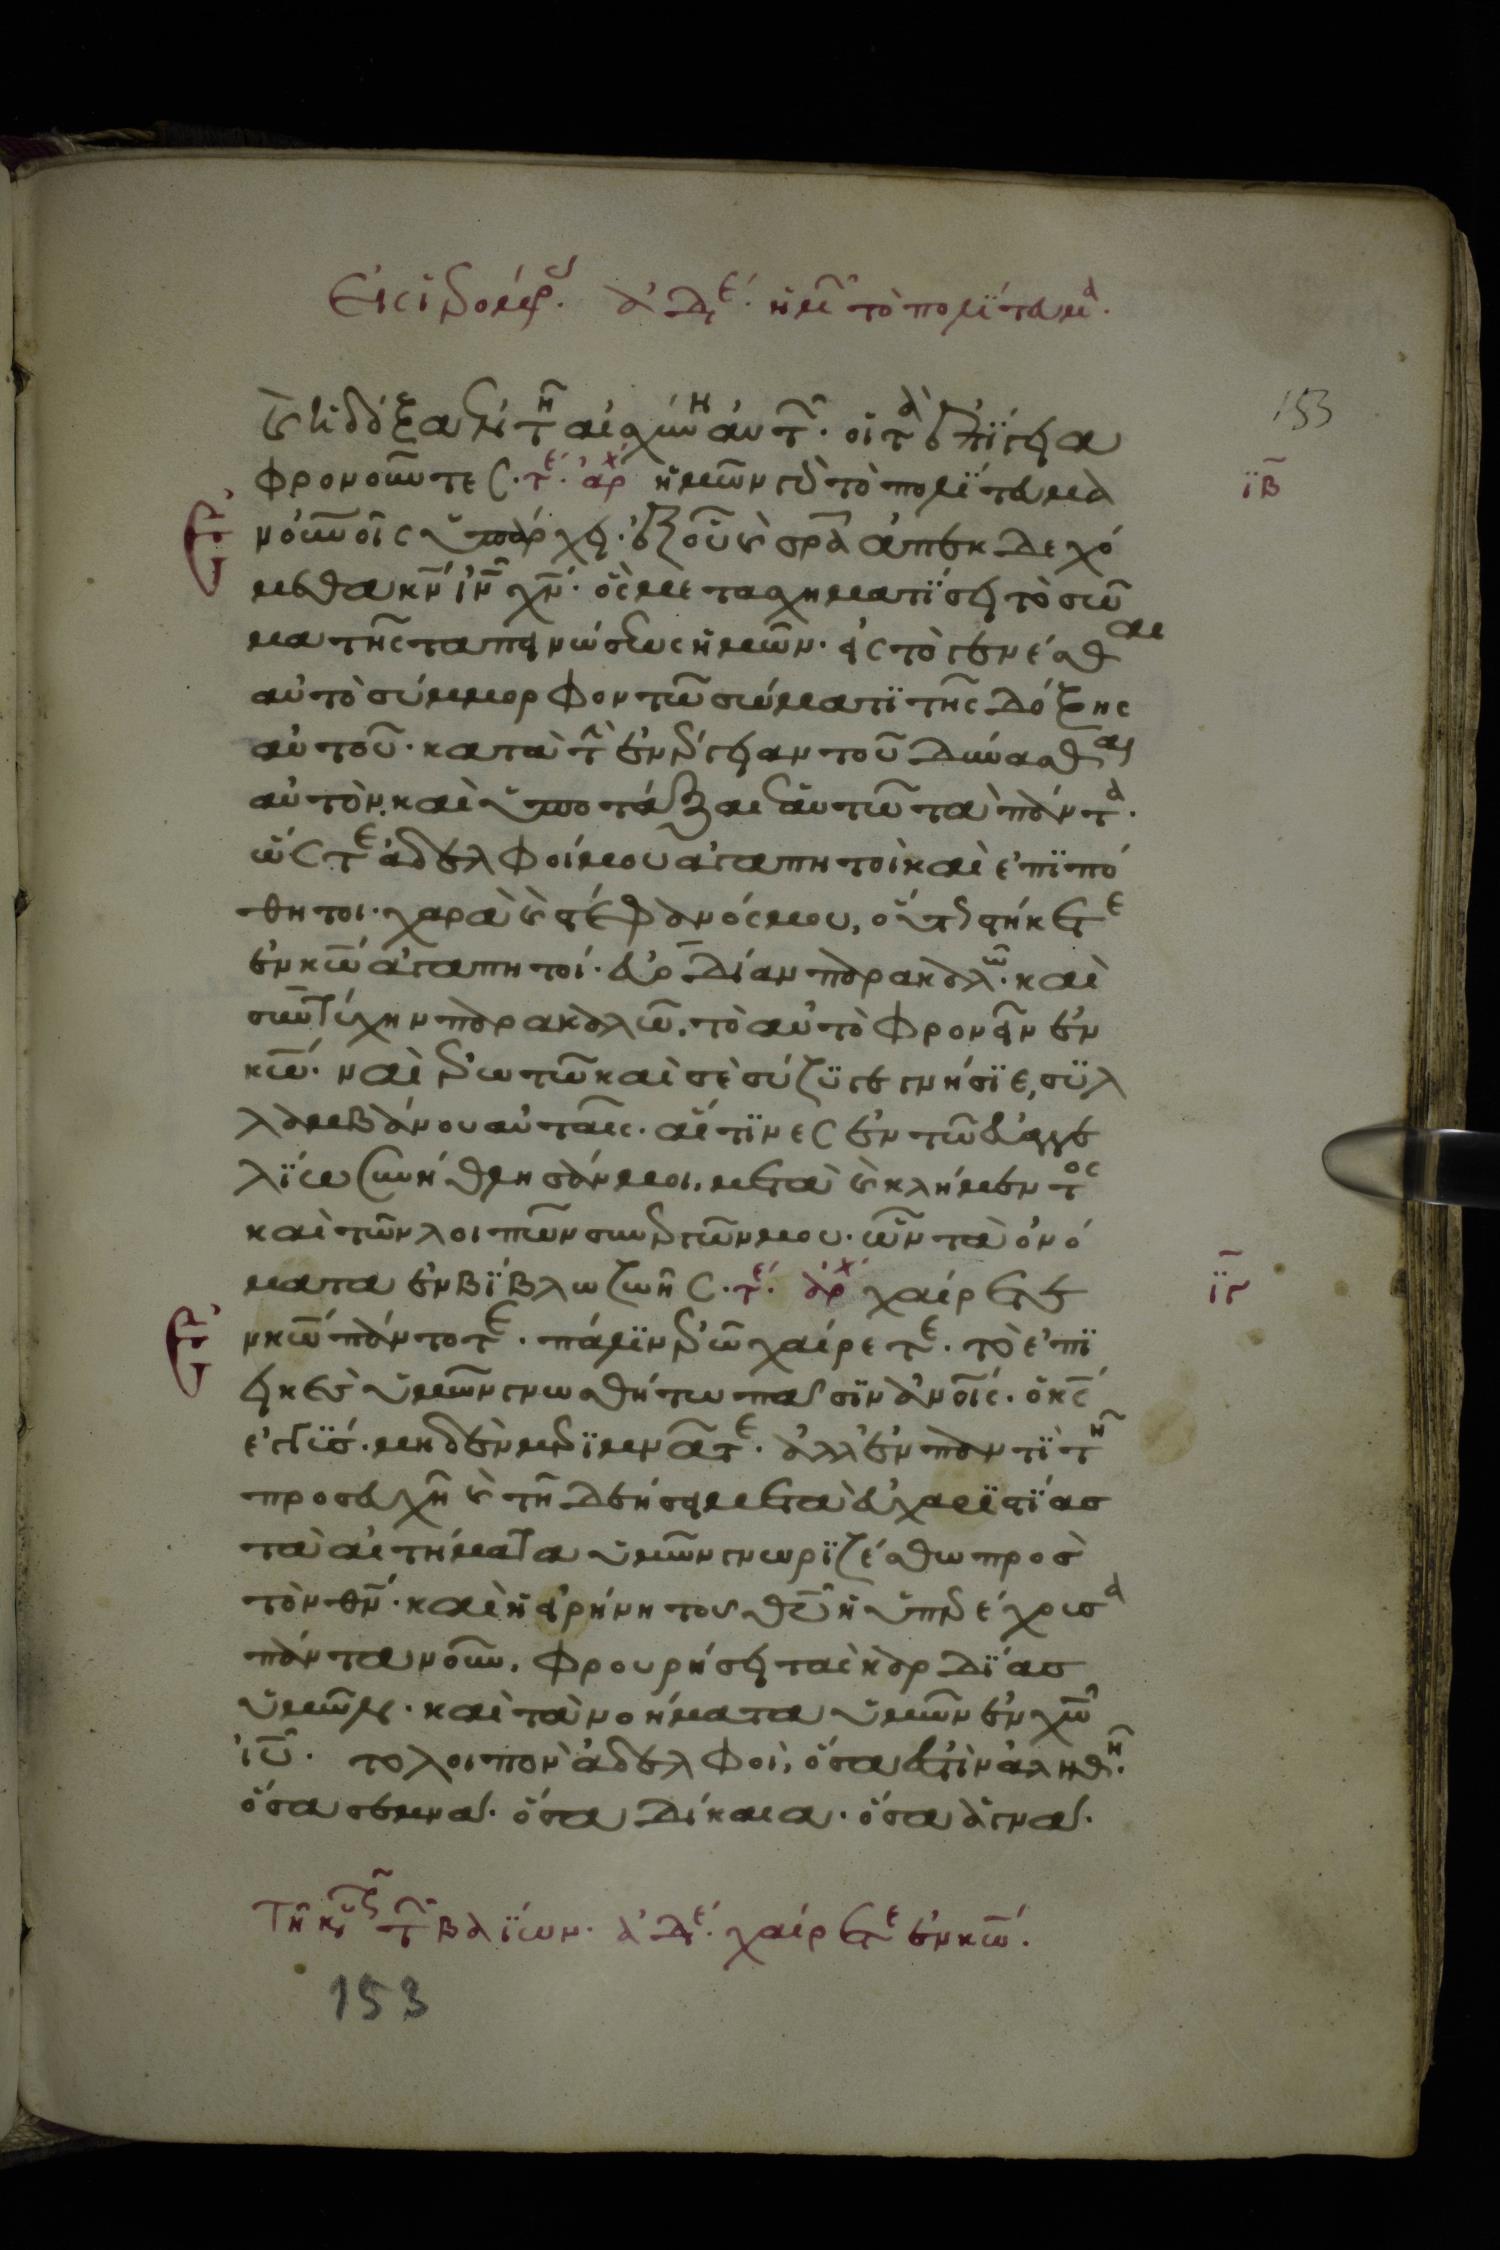 Εἰς ἱερομάρ. ἀδε. ἡμῶν τὸ πολίτευμα.
καὶ ἡ δόξα ἐν τῆ αἰσχύνη αὐτῶν. οἱ τὰ ἐπίγεια
153
φρονοῦντες. τε. ἀρχ ἡμῶν γὰρ τὸ πολίτευμα
ιβ
ἐν οὐνοῖς ὑπάρχει. ἐξ οὗ καὶ σρα ἀπεκδεχό
μεθα κν ιν χν. ὃς μετασχηματίσει τὸ σῶ
μα τῆς ταπεινώσεως ἡμῶν. εἰς τὸ γενέσθαι
αὐτὸ σύμμορφον τῶ σώματι τῆς δόξης
αὐτοῦ. κατὰ τὴν ἐνέργειαν τοῦ δύνασθαι
αὐτὸν καὶ ὑποτάξαι ἑαυτῶ τὰ πάντα.
ὥστε ἀδελφοί μου ἀγαπητοὶ καὶ ἐπιπό
θητοι. χαρὰ καὶ στέφανός μου, οὕτως στήκετε
ἐν κω ἀγαπητοί. εὐωδίαν παρακαλῶ. καὶ
συντύχην παρακαλῶ, τὸ αὐτὸ φρονεῖν ἐν
κω. ναὶ ἐρωτῶ καὶ σὲ σύζυγε γνήσιε, συλ
λαμβάνου αὐταῖς. αἵτινες ἐν τῶ εὐαγγε
λίω συνήθλησάν μοι, μετὰ καὶ κλήμεντος
καὶ τῶν λοιπῶν συνεργῶν μου. ὧν τὰ ὀνό
ματα ἐν βίβλω ζωῆς. τε. ἀρχ χαίρετε ἐ
ιγ
ν κω πάντοτε. πάλιν ἐρῶ χαίρετε. τὸ ἐπι
εικὲς ὑμῶν γνωσθήτω πᾶσιν ἀνοις. ὁ κς
ἐγγύς. μηδὲν μεριμνᾶτε. ἀλλ' ἐν παντὶ τῆ
προσευχῆ καὶ τῆ δεήσει μετὰ εὐχαριστίας
τὰ αἰτήματα ὑμῶν γνωριζέσθω πρὸς
τὸν θν. καὶ ἡ εἰρήνη του θυ ἡ ὑπερέχουσα
πάντα νοῦν, φρουρήσει τὰς καρδίας
ὑμῶν. καὶ τὰ νοήματα ὑμῶν ἐν χω
ιυ. το λοιπὸν ἀδελφοὶ, ὅσα ἐστὶν ἀληθῆ.
ὅσα σεμνα. ὅσα δίκαια. ὅσα ἁγνα.
Τῆ κυ τῶν βαΐων. ἀδε. χαίρετε ἐν κω.
153